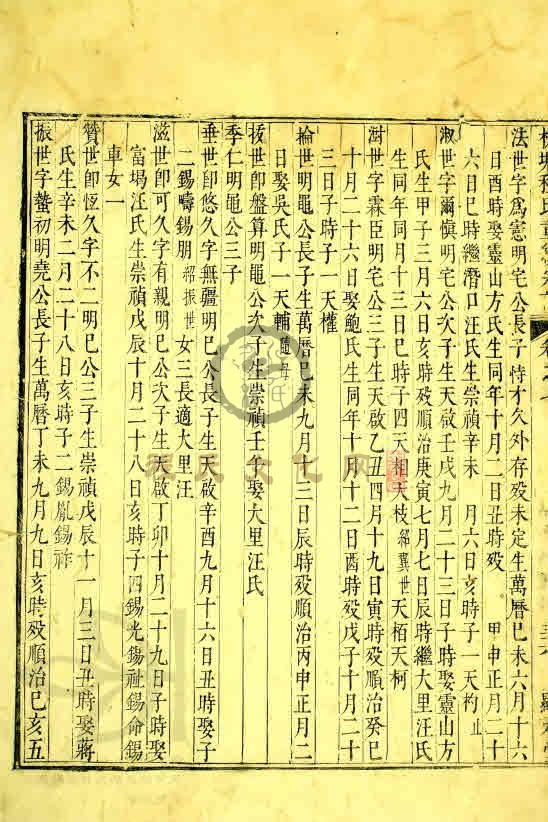 法世字爲憲明宅公長子恃才久外存殁未定生萬曆己未六月十六
日酉時娶靈山方氏生同年十月二日丑時殁 甲申正月二十
六日巳時繼潛口汪氏生崇禎辛未 月六日亥時子一天杓止
淑世字爾慎明宅公次子生天啟壬戌九月二十三日子時娶靈山方
氏生甲子三月六日亥時殁順治庚寅七月七日辰時繼大里汪氏
生同年同月十三日巳時子四天相天枝紹冀世天栢天柯
澍世字霖臣明宅公三子生天啟乙丑四月十九日寅時殁順治癸巳
十月二十六日娶鮑氏生同年十月十二日酉時殁戊子十月二十
三日子時子一天權
掄世明黽公長子生萬曆己未九月十三日辰時殁順治丙申正月二
日娶吳氏子一天輔隨母
拔世卽盤算明黽公次子生崇禎壬午娶大里汪氏
季仁明黽公三子
垂世卽悠久字無疆明巳公長子生天啟辛酉九月十六日丑時娶子
二錫疇錫朋紹振世女三長適大里汪
滋世卽可久字有親明巳公次子生天啟丁卯十月二十九日子時娶
富堨汪氏生崇禎戊辰十月二十八日亥時子四錫光錫祉錫命錫
車女一
贊世卽恆久字不二明巳公三子生崇禎戊辰十一月三日丑時娶蔣
氏生辛未二月二十八日亥時子二錫胤錫祚
振世字蟄初明堯公長子生萬曆丁未九月九日亥時殁順治己亥五